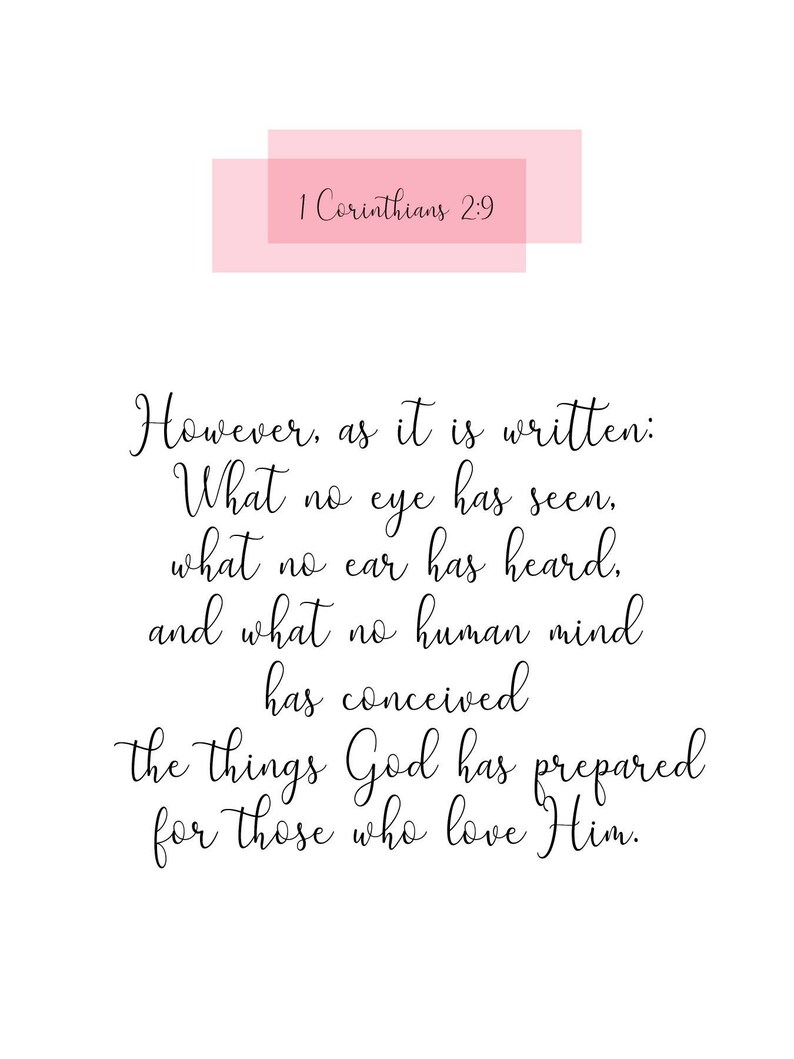 1 Corinthians 2:9
However, as it is written:
What no eye has seen,
what no ear has heard,
and what no human mind
has conceived
the things God has prepared
for those who love Him.